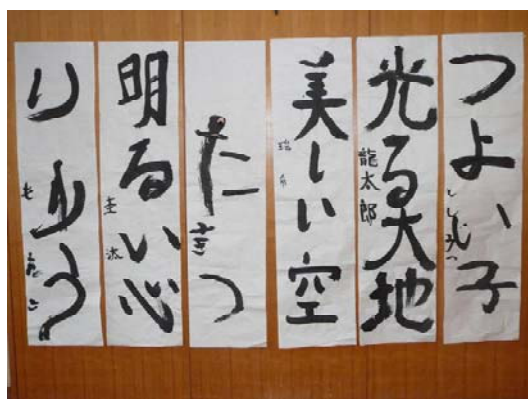 つよい子
光る大地
龍太郎
美しい空
たつ
明るい心
圭汰
りゅう